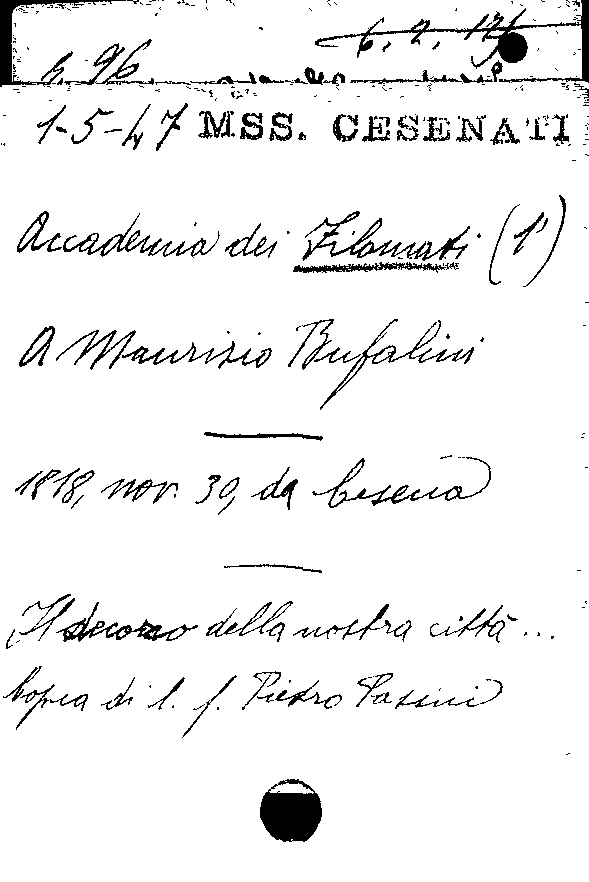 6. 2. 171
r. 96.
1-5-47 MSS. CESENATI
Accademia dei Filomati (1°)
A Maurizio Bufalini
1818, nov. 30, da Cesena
Il decoro della nostra città...
Copia di l. f. Pietro Pasini